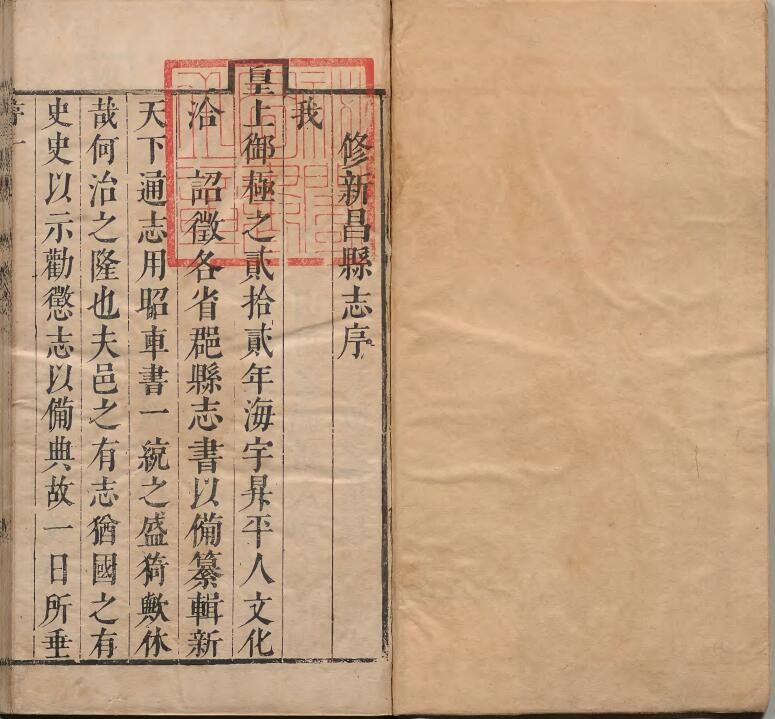 修新昌縣志序
我
皇上御極之貳拾貳年海宇昇平人文化
洽 詔徵各省郡縣志書以備纂輯新
天下通志用昭車書一統之盛猗歟休
哉何治之隆也夫邑之有志猶國之有
史史以示勸懲志以備典故一日所垂
序一